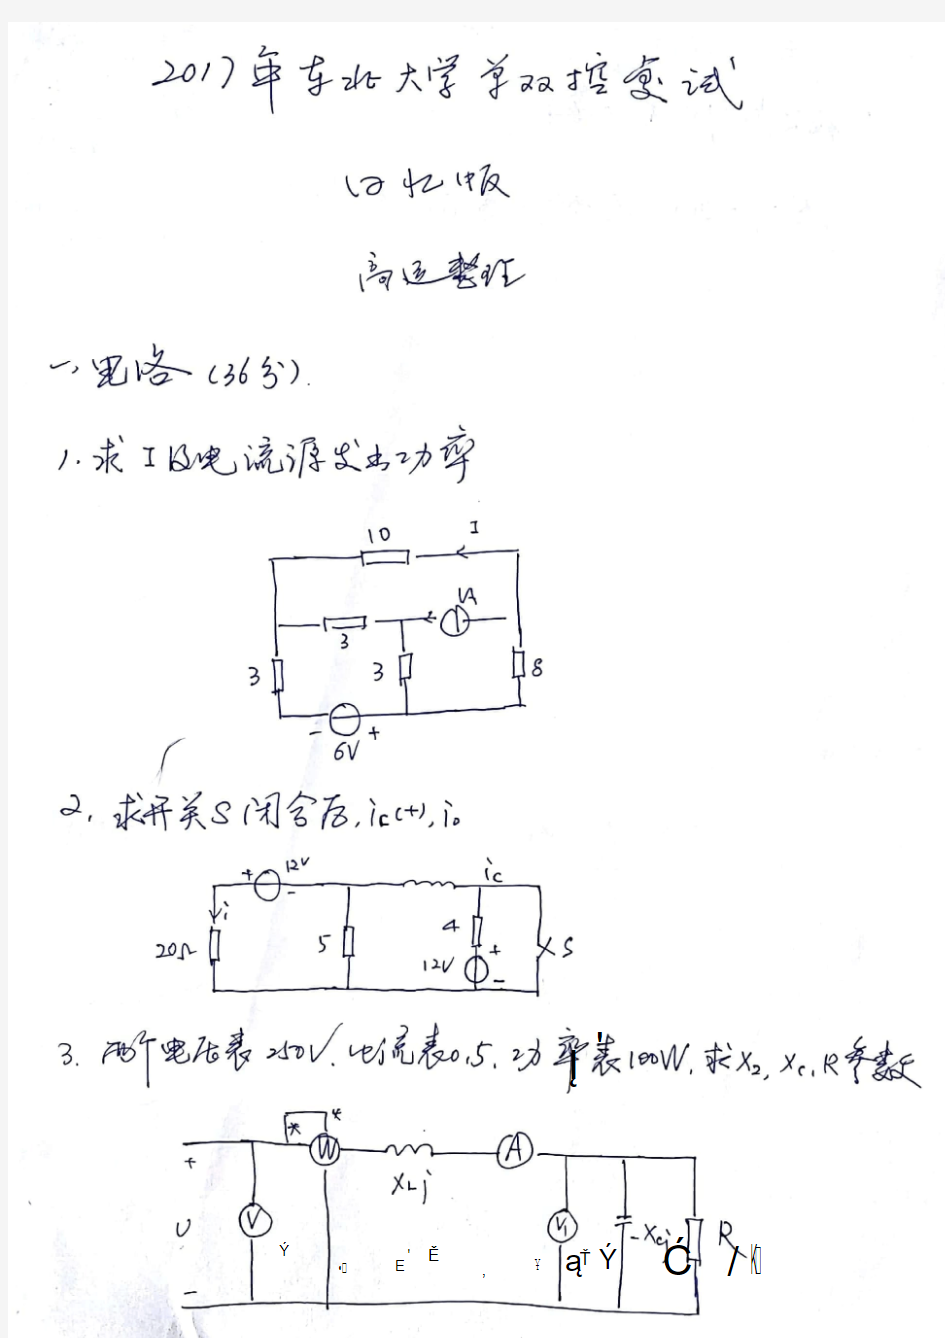 2017年东北大学单双控复试
回忆版
高远整理
一、电路(36分).
1. 求 I 及电流源发出功率
10
I
1A
3
3
3
8
- +
6V
2. 求开关S闭合后, ic(t), i。
+ 12V -
ic
i
20Ω
5
4
12V
+
-
S
3. 两个电压表250V. 电流表0.5. 功率表100W, 求X2, Xc, R参数
* *
W
A
+
XLj
U
V
V1
-Xcj
R
-